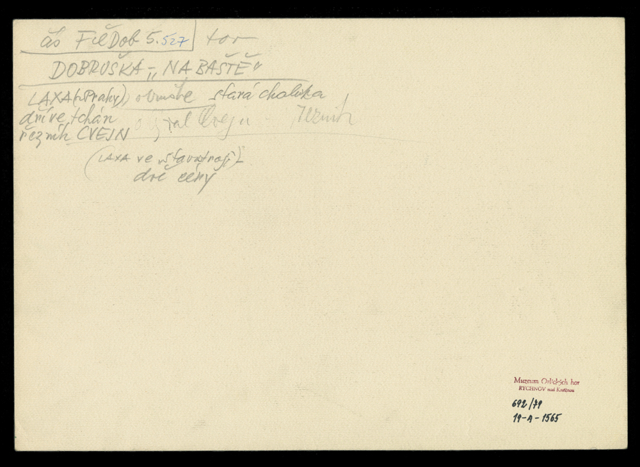 čs FilDob 5.527 tor
DOBRUŠKA - „NA BAŠTĚ"
LAXA (z Prahy) stará chalupa
dříve tchán
řezník CVEJN řezník
(LAXA ve
dvě ceny
Muzeum Orlických hor
RYCHNOV nad Kněžnou
692/79
19-A-1565